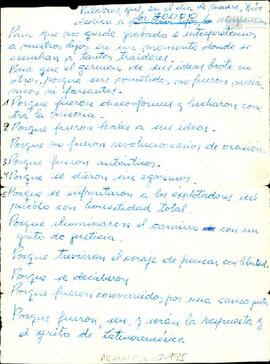 Palabras que, en el día de madre, hice
dedico a los 30.000
Para que nos quede grabado e interpretemos
a nuestros hijos en un momento donde se
acunban a tantos traidores.
Para que el germen de sus ideas brote en
otro, porque sus cometido, no fueron
ni farsantes.
1 Porque fueron disconformes y lucharon con
tra la miseria.
2 Porque fueron leales a sus ideas.
Porque no fueron revolucionarios de ocasión
3 Porque fueron auténticos.
4 Porque se dieron sin egoísmos.
5 Porque se enfrentaron a los explotadores del
pueblo con honestidad total.
Porque iluminaron el camino con un
grito de justicia.
Porque tuvieron el coraje de pensar con libertad.
Porque se decidieron
Porque fueron convencidos por una causa justa
Porque fueron, son, y serán la respuesta y
el grito de Latinoamérica